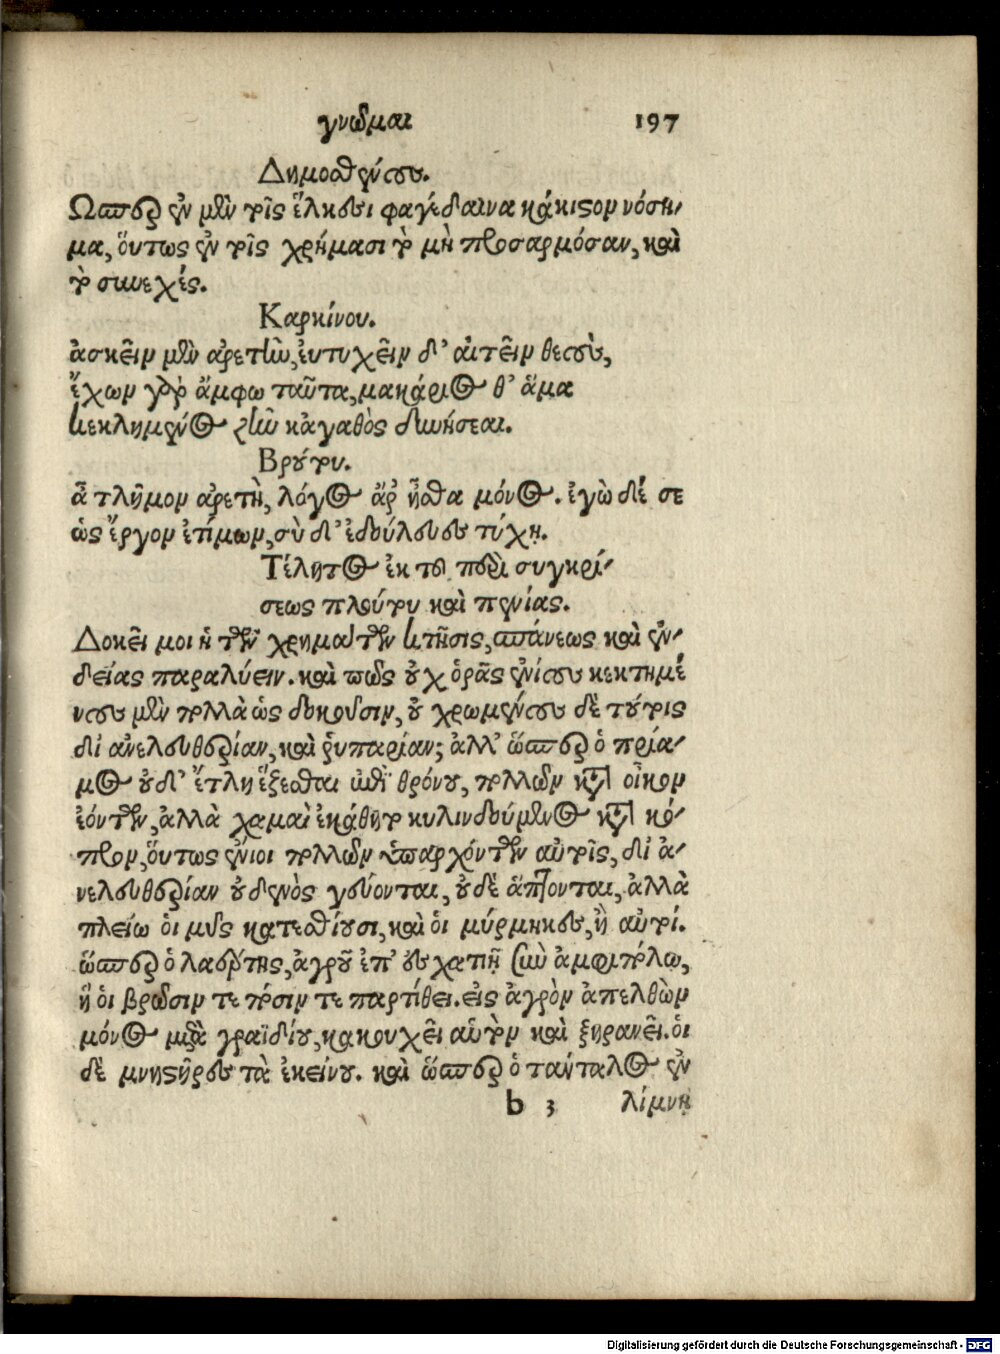 γνῶμαι 197
Δημοσθένους.
Ὥσπερ ἐν μὲν τοῖς ἕλκεσι φαγέδαινα κάκιςον νόση-
μα, ὅυτως ἐν τοῖς χρήμασι τὸ μὴ προσαρμόσαν, καὶ
τὸ συνεχές.
Καρκίνου.
ἀσκεῖν μὲν ἀρετὴν, ἐυτυχεῖν δ' αἰτεῖν θεοὺς,
ἔχων γὰρ ἄμφω ταῦτα, μακάριος θ' ἅμα
κεκλημένος ζῆν κἀγαθὸς δυνήσεαι.
Βρούτου.
ἆ τλῆμον ἀρετὴ, λόγος ἄρ' ἦσθα μόνος. ἐγὼ δέ σε
ὡς ἔργον ἐτίμων, σὺ δ' ἐδούλευες τύχῃ.
Τέλητος ἐκ τοῦ περὶ συγκρί-
σεως πλούτου καὶ πενίας.
Δοκεῖ μοι ἡ τῶν χρημάτων κτῆσις, σπάνεως καὶ ἐν-
δείας παραλύειν. καὶ πῶς οὐχ ὁρᾷς ἐνίους κεκτημέ
νους μὲν πολλὰ ὡς δοκοῦσιν, οὐ χρωμένους δὲ τούτοις
δι' ἀνελευθερίαν, καὶ ῥυπαρίαν; ἀλλ' ὥσπερ ὁ πρία-
μος οὐδ' ἔτλη ἕζεσθαι ἐπὶ θρόνου, πολλῶν κατ' οἶκον
ἐόντων, ἀλλὰ χαμαὶ ἐκάθητο κυλινδούμενος κατὰ κό-
προν, ὅυτως ἔνιοι πολλῶν ὑπαρχόντων αὐτοῖς, δι' ἀ-
νελευθερίαν οὐδενὸς γεύονται, οὐδὲ ἅπτονται, ἀλλὰ
πλείω ὁι μῦς κατεσθίουσι, καὶ ὁι μύρμηκες, ἢ αὐτοί.
ὥσπερ ὁ λαέρτης, ἀγροῦ ἐπ' ἐσχατιῇ σὺν ἀμφιπόλῳ,
ἥ ὁι βρῶσιν τε πόσιν τε παρτίθει. εἰς ἀγρὸν ἀπελθὼν
μόνος μετὰ γραϊδίου, κακουχεῖ αὑτὸν καὶ ξηρανεῖ. ὁι
δὲ μνηςῆρες τὰ ἐκείνου. καὶ ὥσπερ ὁ τάνταλος ἐν
b 3 λίμνῃ
Digitalisierung gefördert durch die Deutsche Forschungsgemeinschaft - DFG